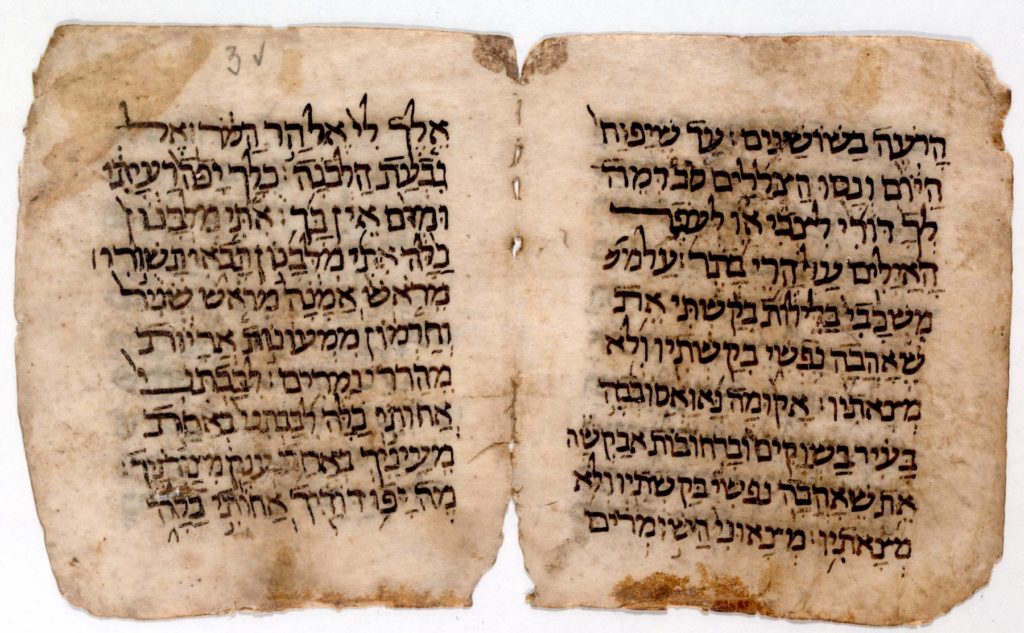 הרעה בשושנים: עד שיפוח
היום ונסו הצללים סב דמה
לך דודי לצבי או לעפר
האילים על הרי בתר: על מש
משכבי בלילות בקשתי את
שאהבה נפשי בקשתיו ולא
מצאתיו: אקומה נא ואסובבה
בעיר בשוקים וברחובות אבקשה
את שאהבה נפשי בקשתיו ולא
מצאתיו: מצאוני השומרים
3 v
אלך לי אל הר המר ואל
גבעת הלבנה: כלך יפה רעיתי
ומום אין בך: אתי מלבנון
כלה אתי מלבנון תבאי תשורי
מראש אמנה מראש שניר
וחרמון ממעונות אריות
מהררי נמרים: לבבתני
אחותי כלה לבבתני באחת
מעיניך באחד ענק מצורניך:
מה יפו דודיך אחותי כלה